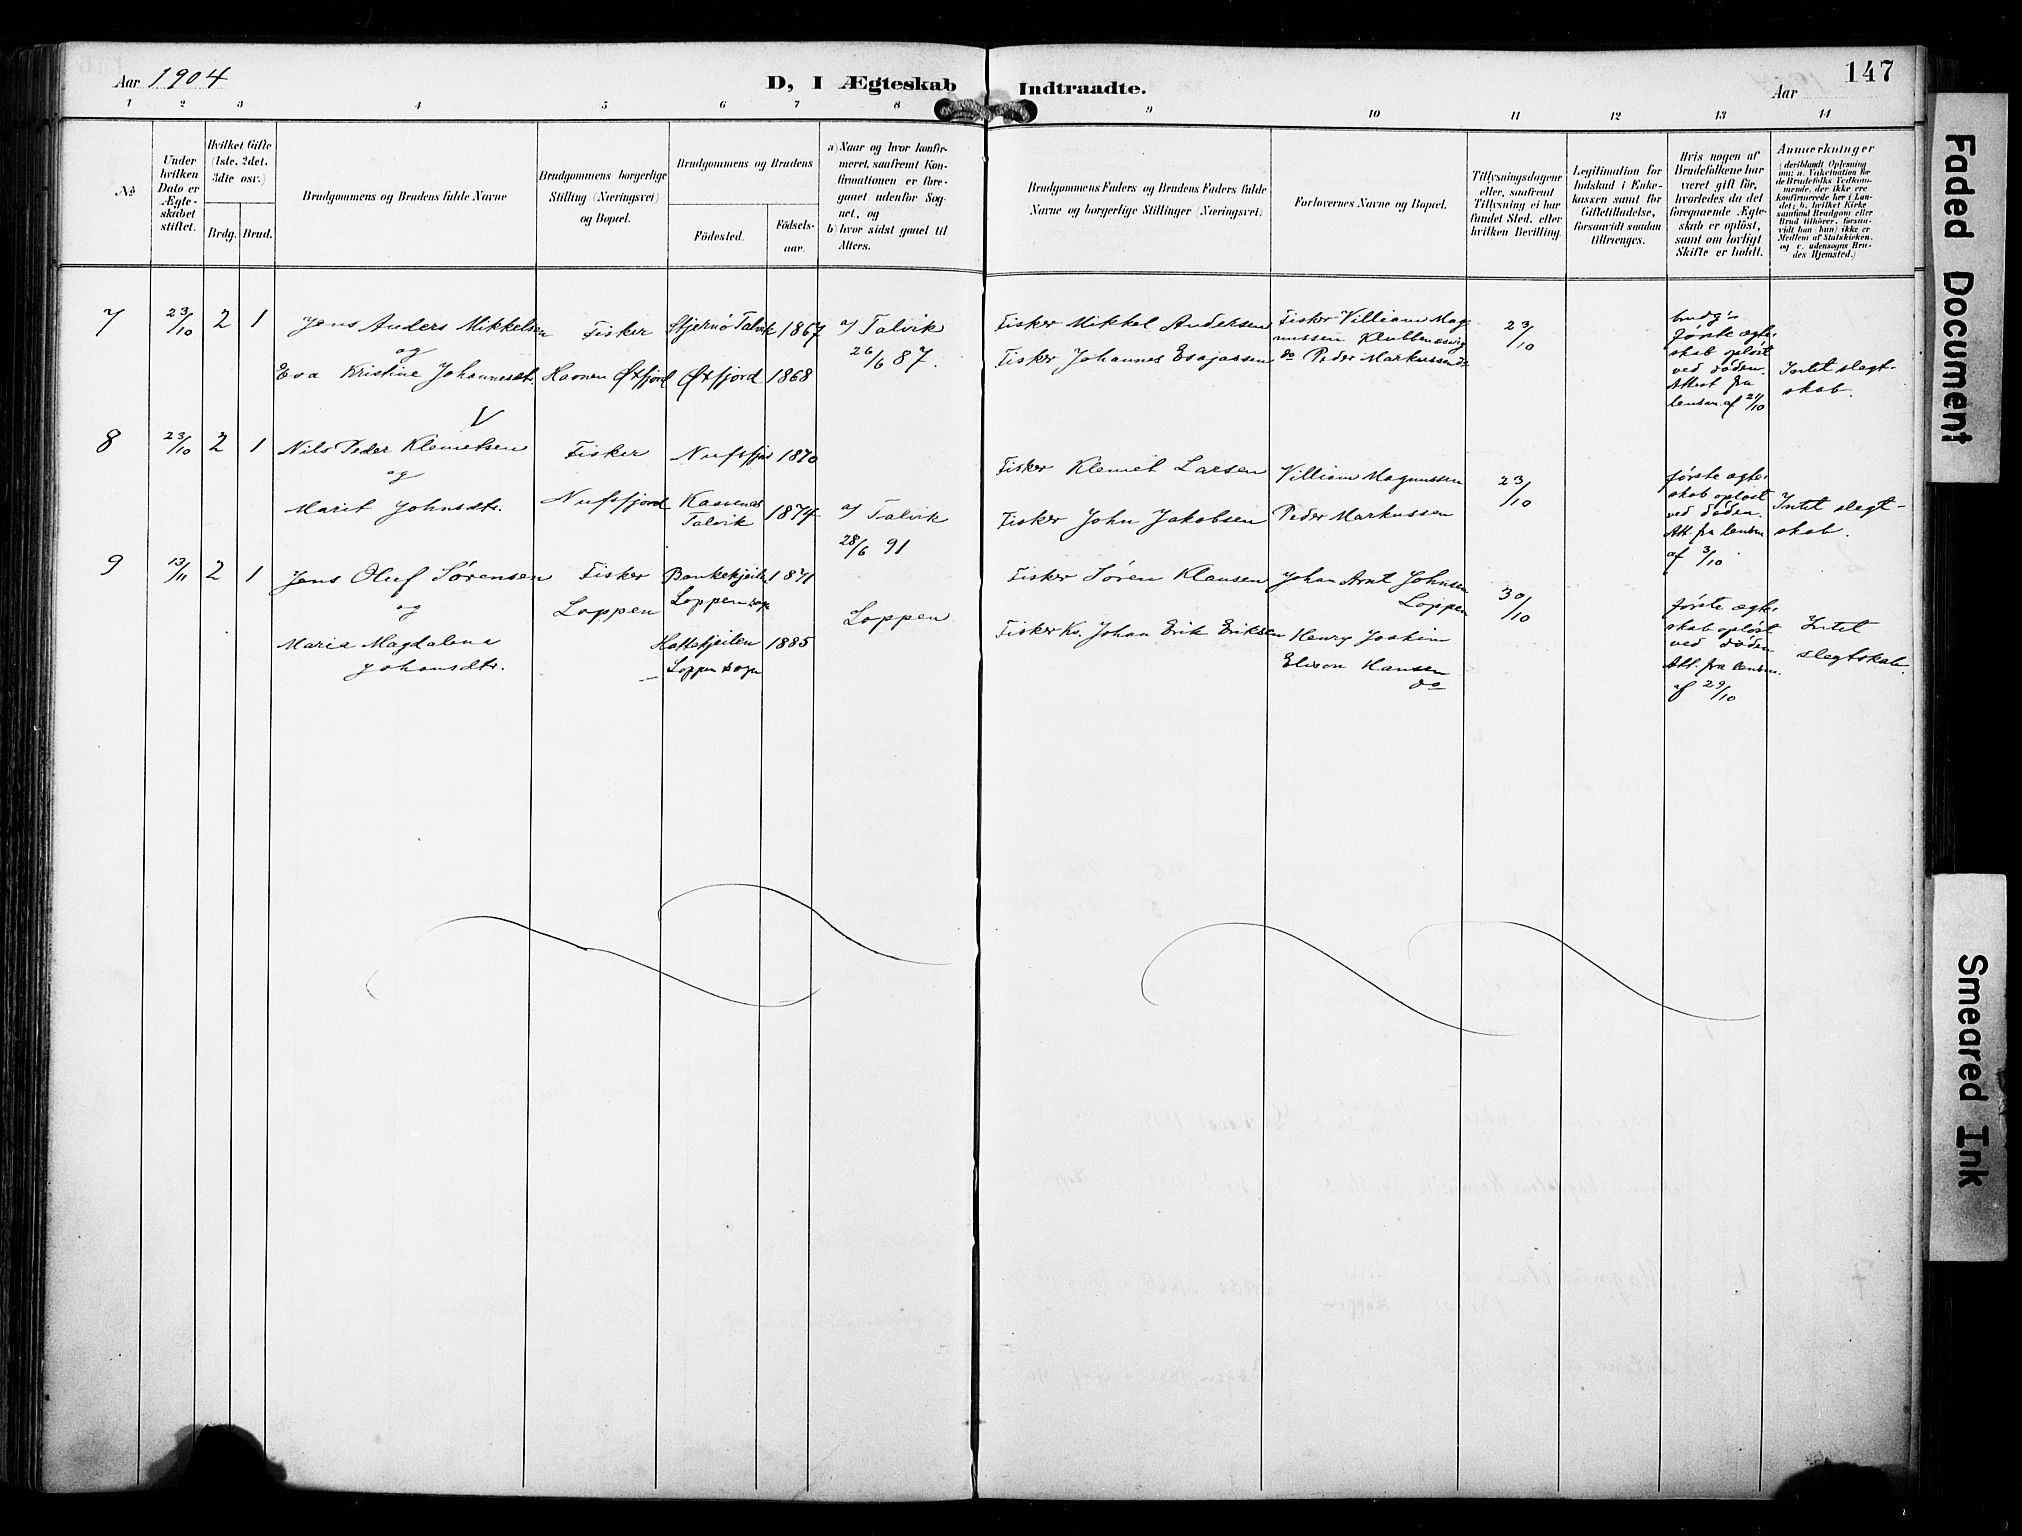 Aar 1904
D, I Ægteskab Indtraadte.
Aar
147
1 2 3 4 5 6 7 8 9 10 11 12 13 14
No
Under
hvilken
Dato er
Ægte-
skabet
stiftet.
Hvilket Gifte
(1ste, 2det,
3die osv.)
Brdg. Brud.
Brudgommens og Brudens fulde Navne
Brudgommens borgerlige
Stilling (Næringsvei)
og Bopæl.
Brudgommens og Brudens
Fødested.
Fødsels-
aar.
a) Naar og hvor konfir-
meret, saafremt Kon-
firmationen er fore-
gaaet udenfor Sog-
net, og
b) hvor sidst gaaet til
Alters.
Brudgommens Faders og Brudens Faders fulde
Navne og borgerlige Stillinger (Næringsvei)
Forlovernes Navne og Bopæl.
Tillysningsdagene
eller, saafremt
Tillysning ei har
fundet Sted, efter
hvilken Bevilling.
Legitimation for
Indskud i Enke-
kassen samt for
Giftetilladelse,
forsaavidt saadan
tiltrænges.
Hvis nogen af
Brudefolkene har
været gift før,
hvorledes da det
foregaaende Ægte-
skab er opløst,
samt om lovligt
Skifte er holdt.
Anmærkninger
(deriblandt Oplysning
om: a. Vakcination for
de Brudefolks Vedkom-
mende, der ikke ere
konfirmerede her i Lan-
det; b. hvilket Kirke
samfund Brudgom eller
Brud tilhører, forsaa-
vidt han (hun) ikke er
Medlem af Statskirken,
og c. udensogns Bru-
des Hjemsted.)
7 23/10 2 1 Jens Anders Mikkelsen Fisker Stjernø Talvik 1867 a) Talvik
og 26/6 87.
Eva Kristine Johannesdt. Havnen Øxfjord Øxfjord 1868
Fisker Mikkel Andersen
Fisker Johannes Esajassen
Fisker Villiam Mag
nussen
do Peder Markussen do
23/10
brudg's
første ægte-
skab opløst
ved døden.
Attest fra
lensm. af 21/10
Intet slegt-
skab.
V
8 23/10 2 1 Nils Peder Klemetsen Fisker Nufsfjor 1870
og
Marit Johnsdtr. Nufsfjord
Talvik 1874 a) Talvik
28/6 91
Fisker Klemet Larsen
Fisker John Jakobsen
Villiam Magnussen
Peder Markussen
23/10
første ægte-
skab opløst
ved døden.
Att. fra lensm
af 3/10
Intet slegt-
skab.
9 13/11 2 1 Jens Oluf Sørensen Fisker 1871
og Loppen Loppen sogn Loppen
Maria Magdalena 1885
Johansdtr. Loppen sogn
Fisker Søren Klausen
Fisker Ks. Johan Erik Eriksen
Johan Arnt Johnsen
Loppen
Henry Joakim
Elison Hansen
do
30/10
første ægte-
skab opløst
ved døden
Att. fra lensm.
af 29/10
Intet
slegtskab.
Faded Document
Smeared Ink